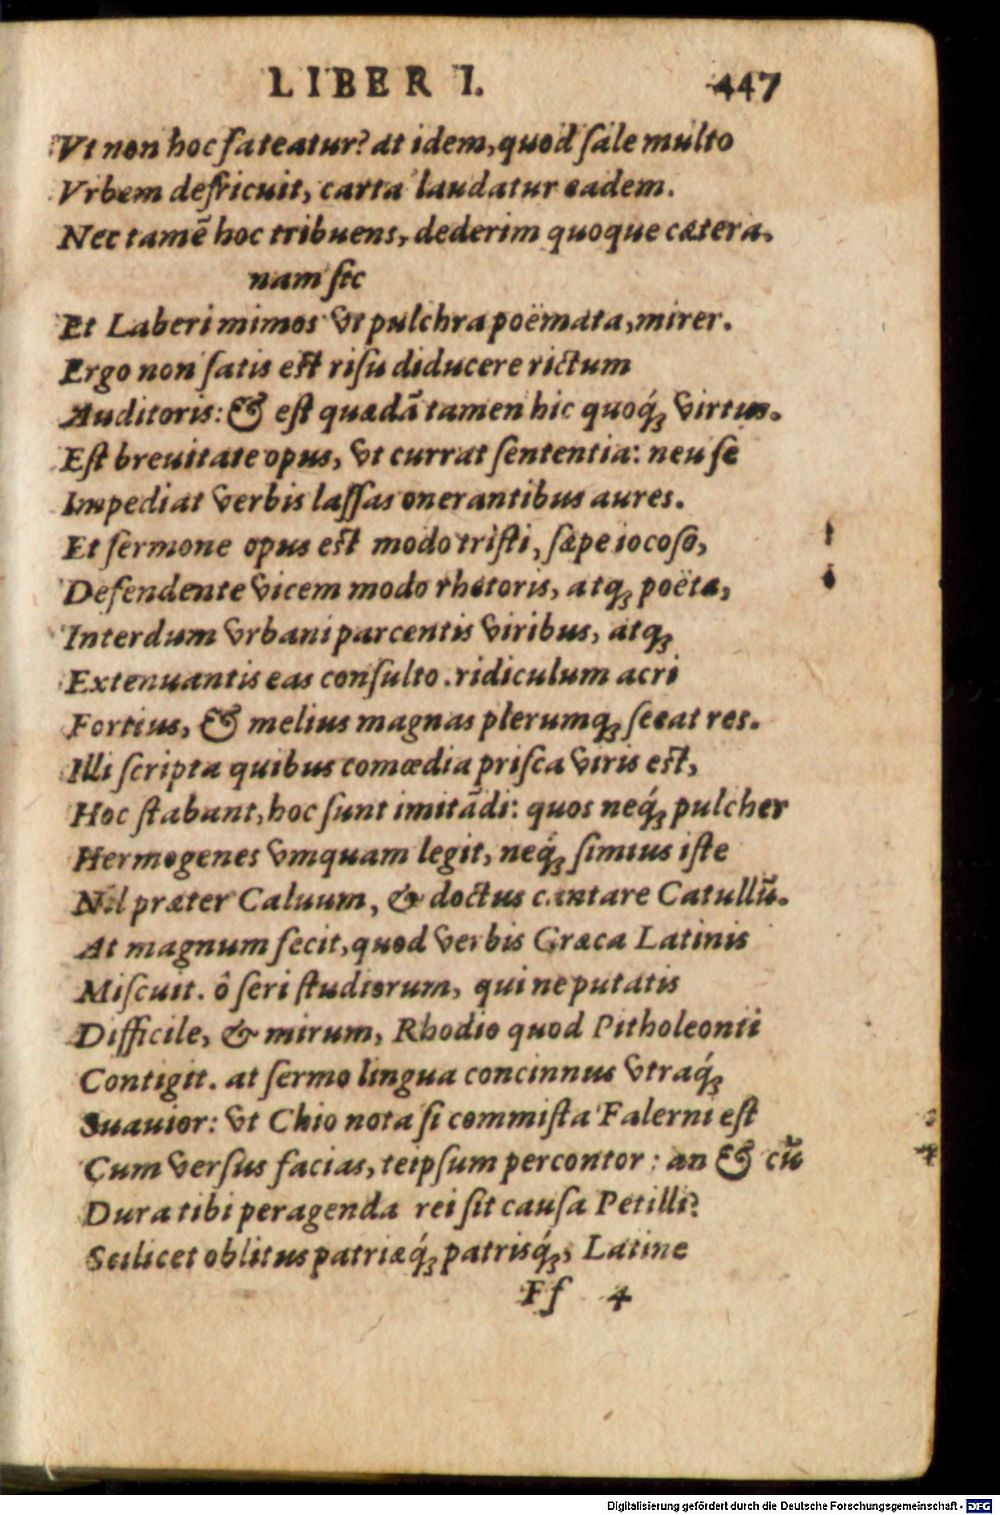 LIBER I. 447
Vt non hoc fateatur? at idem, quod sale multo
Vrbem defricuit, carta laudatur eadem.
Nec tamē hoc tribuens, dederim quoque cætera.
nam sic
Et Laberi mimos vt pulchra poëmata, mirer.
Ergo non satis est risu diducere rictum
Auditoris: & est quædā tamen hic quoq́; virtus.
Est breuitate opus, vt currat sententia: neu se
Impediat verbis lassas onerantibus aures.
Et sermone opus est modo tristi, sæpe iocoso,
Defendente vicem modo rhetoris, atq; poëtæ,
Interdum vrbani parcentis viribus, atq;
Extenuantis eas consulto. ridiculum acri
Fortius, & melius magnas plerumq; secat res.
Illi scripta quibus comœdia prisca viris est,
Hoc stabant, hoc sunt imitādi: quos neq́; pulcher
Hermogenes vmquam legit, neq́; simius iste
Nil præter Caluum, & doctus cantare Catullū.
At magnum fecit, quod verbis Græca Latinis
Miscuit. ô seri studiorum, qui ne putatis
Difficile, & mirum, Rhodio quod Pitholeonti
Contigit. at sermo lingua concinnus vtraq́;
Suauior: vt Chio nota si commista Falerni est
Cum versus facias, teipsum percontor: an & cū
Dura tibi peragenda rei sit causa Petilli?
Scilicet oblitus patriæq́; patrisq́;, Latine
Ff 4
Digitalisierung gefördert durch die Deutsche Forschungsgemeinschaft - DFG